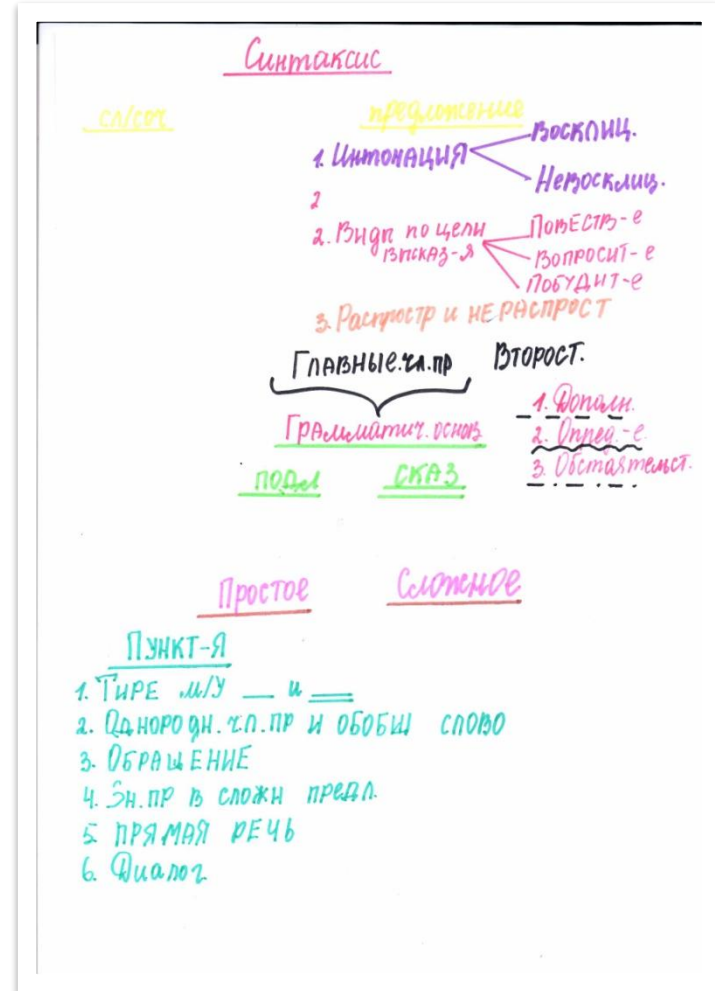 Синтаксис
сл/соч предложение
1. Интонация Восклиц.
Невосклиц.
2
2. Виды по цели Повеств-е
высказ-я Вопросит-е
Побудит-е
3. Распростр и нераспрост
Главные.чл.пр Второст.
1. Дополн.
Грамматич. основ 2. Опред.-е.
подл сказ 3. Обстоятельст.
Простое Сложное
Пункт-я
1. Тире м/у __ и __
2. Однородн. чл.пр и обобщ слово
3. Обращение
4. Зн.пр в сложн предл.
5. Прямая речь
6. Диалог